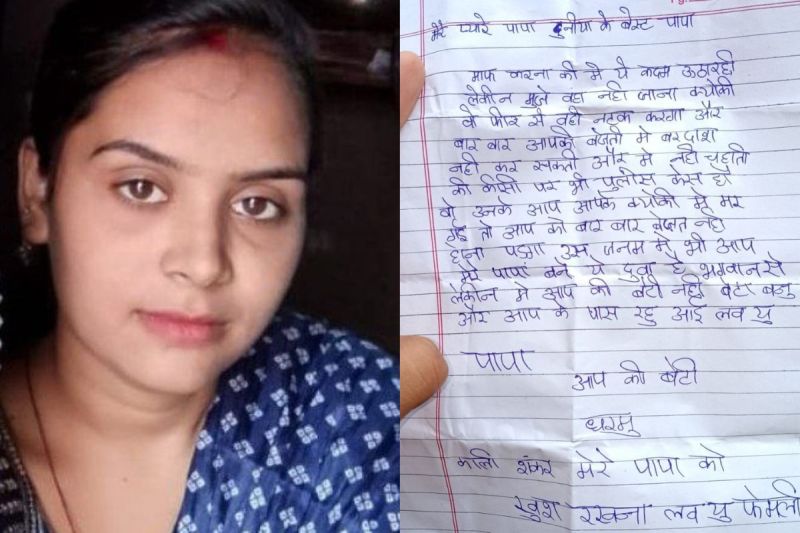 मेरे प्यारे पापा दुनीया के बेस्ट पापा
माफ करना की मे ये कदम उठा रही
लेकीन मुजे वहा नही जाना क्योकी
वो फीर से वही नटक करगा और
बार बार आपकी बेजती मे बरदाश
नही कर सकती और मे नही चहाती
की कीसी पर भी पुलीस केस हो
वो उनके आप आपके क्योकी मे मर
गइ तो आप को बार बार बेजत नही
होना पड़गा उस जनम मे भी आप
मेरे पापा बने ये दुवा है भगवान से
लेकीन मे आप की बेटी नही बेटा बनु
और आप के पास रहु आई लव यु
पापा
आप की बेटी
धरमु
काली शंकर मेरे पापा को
खुश रखना लव यु फेमली